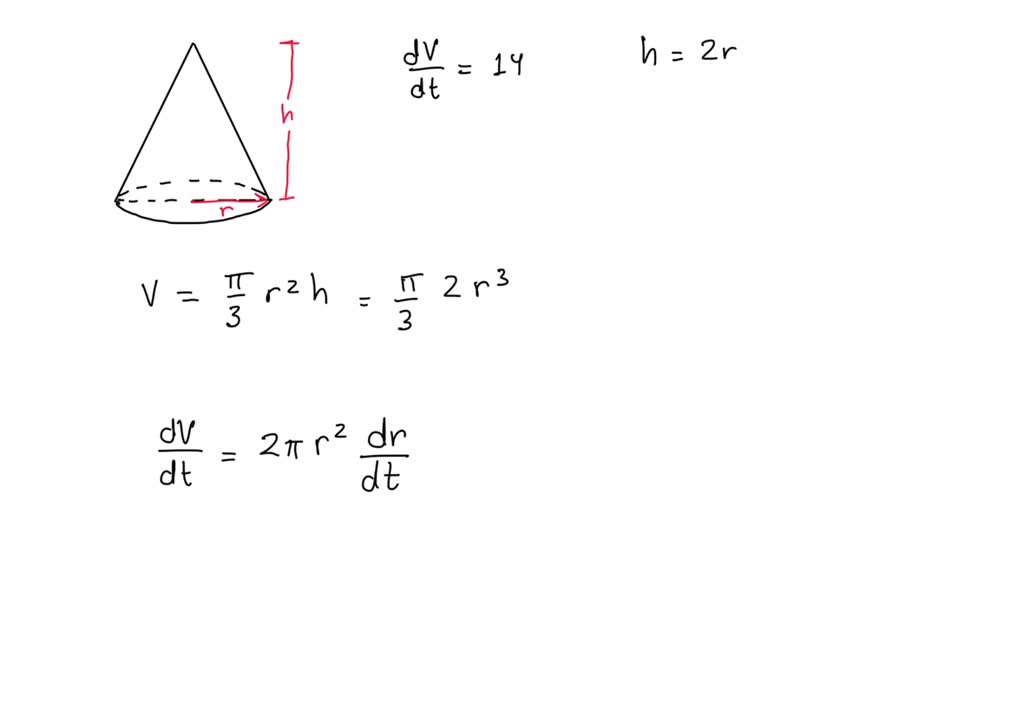 dV/dt = 14
h = 2r
h
r
V = π/3 r² h = π/3 2 r³
dV/dt = 2π r² dr/dt